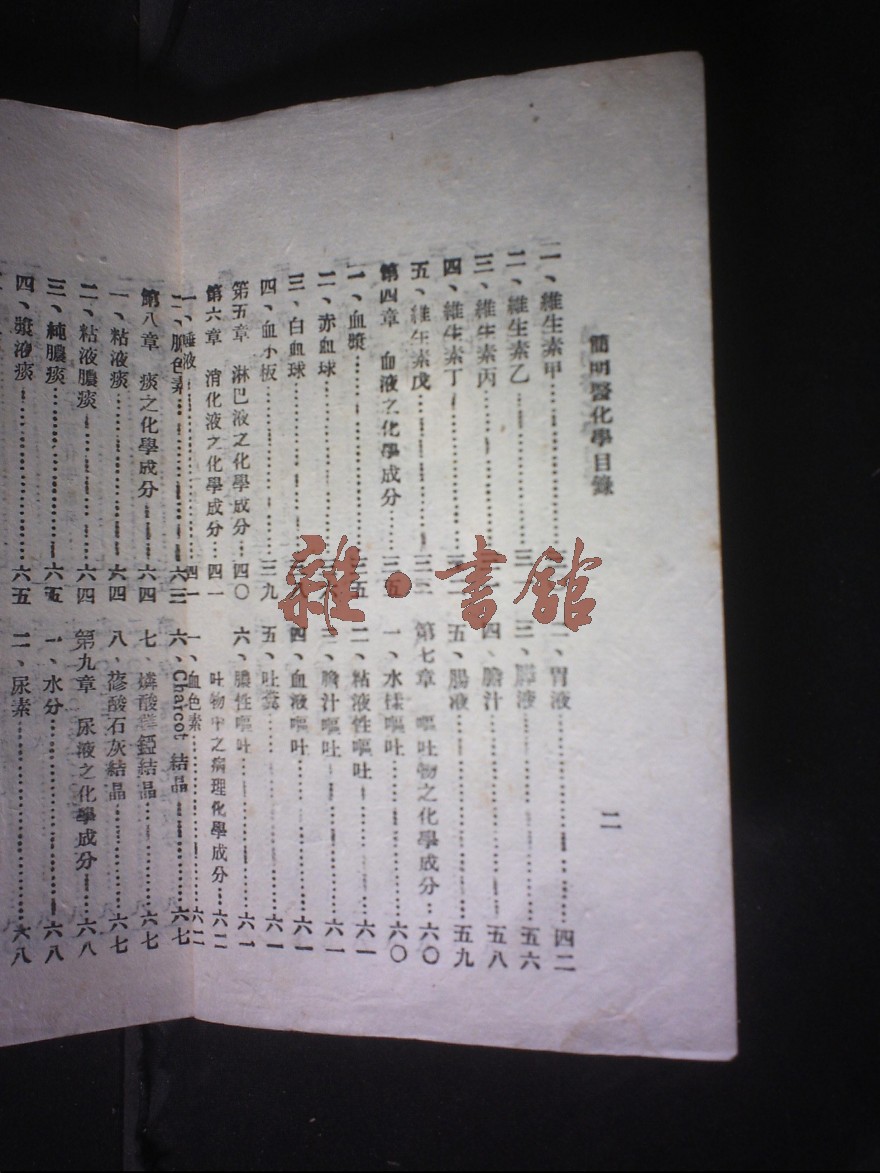 簡明醫化學目錄
二
一、維生素甲
二、維生素乙
三、維生素丙
四、維生素丁
五、維生素戊……三三
第四章 血液之化學成分……三五
一、血漿……三五
二、赤血球
三、白血球
四、血小板……三九
第五章 淋巴液之化學成分…四〇
第六章 消化液之化學成分…四一
一、唾液……四一
二、胃液……四二
三、膵液……五六
四、膽汁……五八
五、腸液……五九
第七章 嘔吐物之化學成分…六〇
一、水樣嘔吐……六〇
二、粘液性嘔吐……六一
三、膽汁嘔吐……六一
四、血液嘔吐……六一
五、吐糞……六一
六、膿性嘔吐……六一
吐物中之病理化學成分…六二
一、血色素……六二
色素……六三
第八章 痰之化學成分……六四
一、粘液痰……六四
二、粘液膿痰……六四
三、純膿痰……六五
四、漿液痰……六五
六、Charcot 結晶……六七
七、燐酸 結晶……六七
八、蓚酸石灰結晶……六七
第九章 尿液之化學成分…六八
一、水分……六八
二、尿素……六八
雜·書館